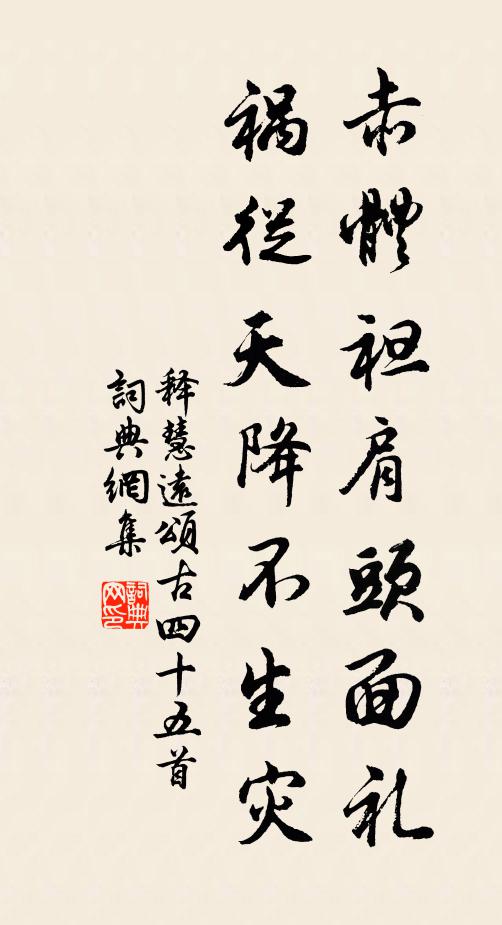 赤體袒肩頭面礼
禍從天降不生灾
释慧遠頌古四十五首
詞典網集
詞典網印